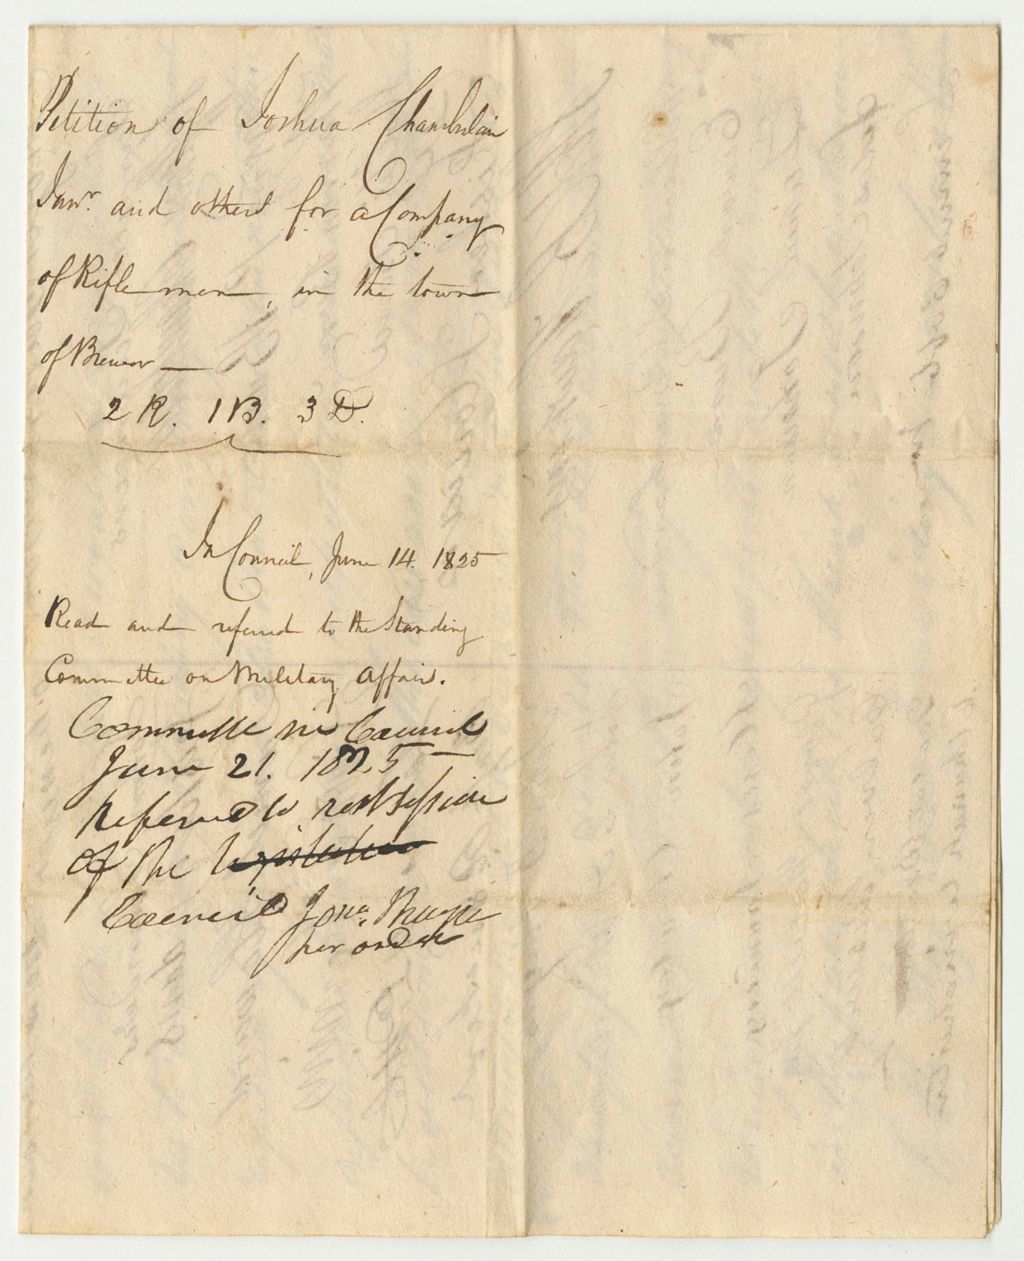 Petition of Joshua Chamberlain
Junr. and others for a Company
of Rifle men, in the town
of Brewer —
2 R. 1 B. 3 D.
In Council, June 14. 1825
Read and referred to the Standing
Committee on Military Affairs.
Committe in Council
June 21. 1825
Referred to next Session
of the Legislature
Council Jona.
per order